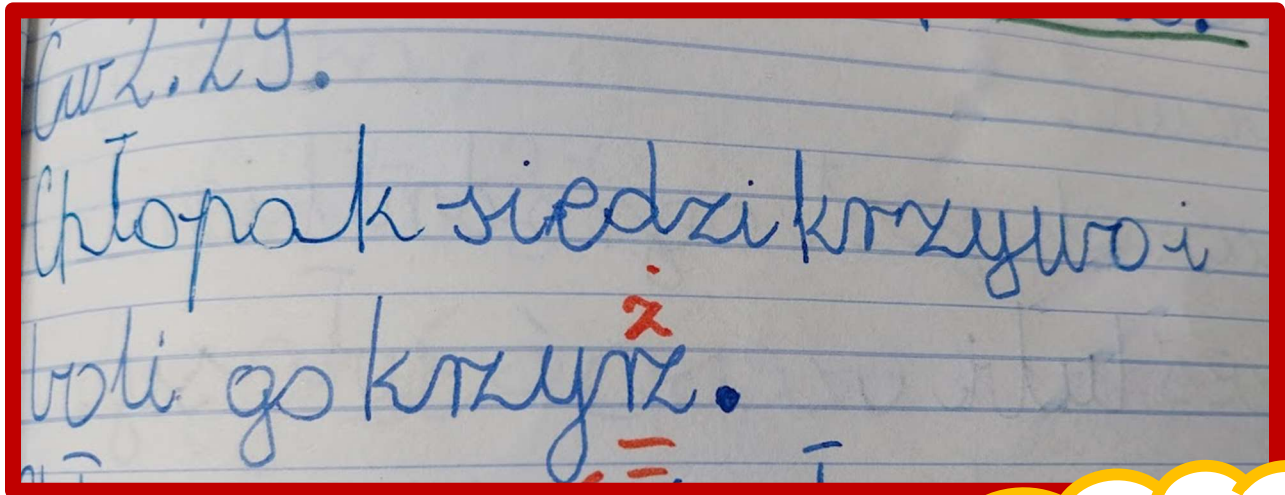 Ćw 2.29.
Chłopak siedzi krzywo i
ż
boli go krzyrz.